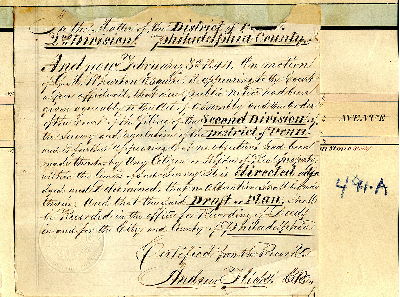 In the Matter of the District of Penn
2nd Division Philadelphia County
And now February 3rd 1844, On motion
it appearing to the Court
upon affidavit, that due public notice had been
given agreeably to the Act of Assembly and the order
of the Court of the filing of the Second Division of
the Survey and regulation of the District of Penn
and it further appearing that no objections had been
made thereto by Any Citizen or Holder of Real property
within the limits of said Survey, It is directed adj
and determined, that no alteration shall be made
therein And that the said Draft or Plan, shall
be Recorded in the office for Recording of Deeds
in and for the City and County of Philadelphia
Certified from the Records
Andrew Flick
AVENUE
491-A